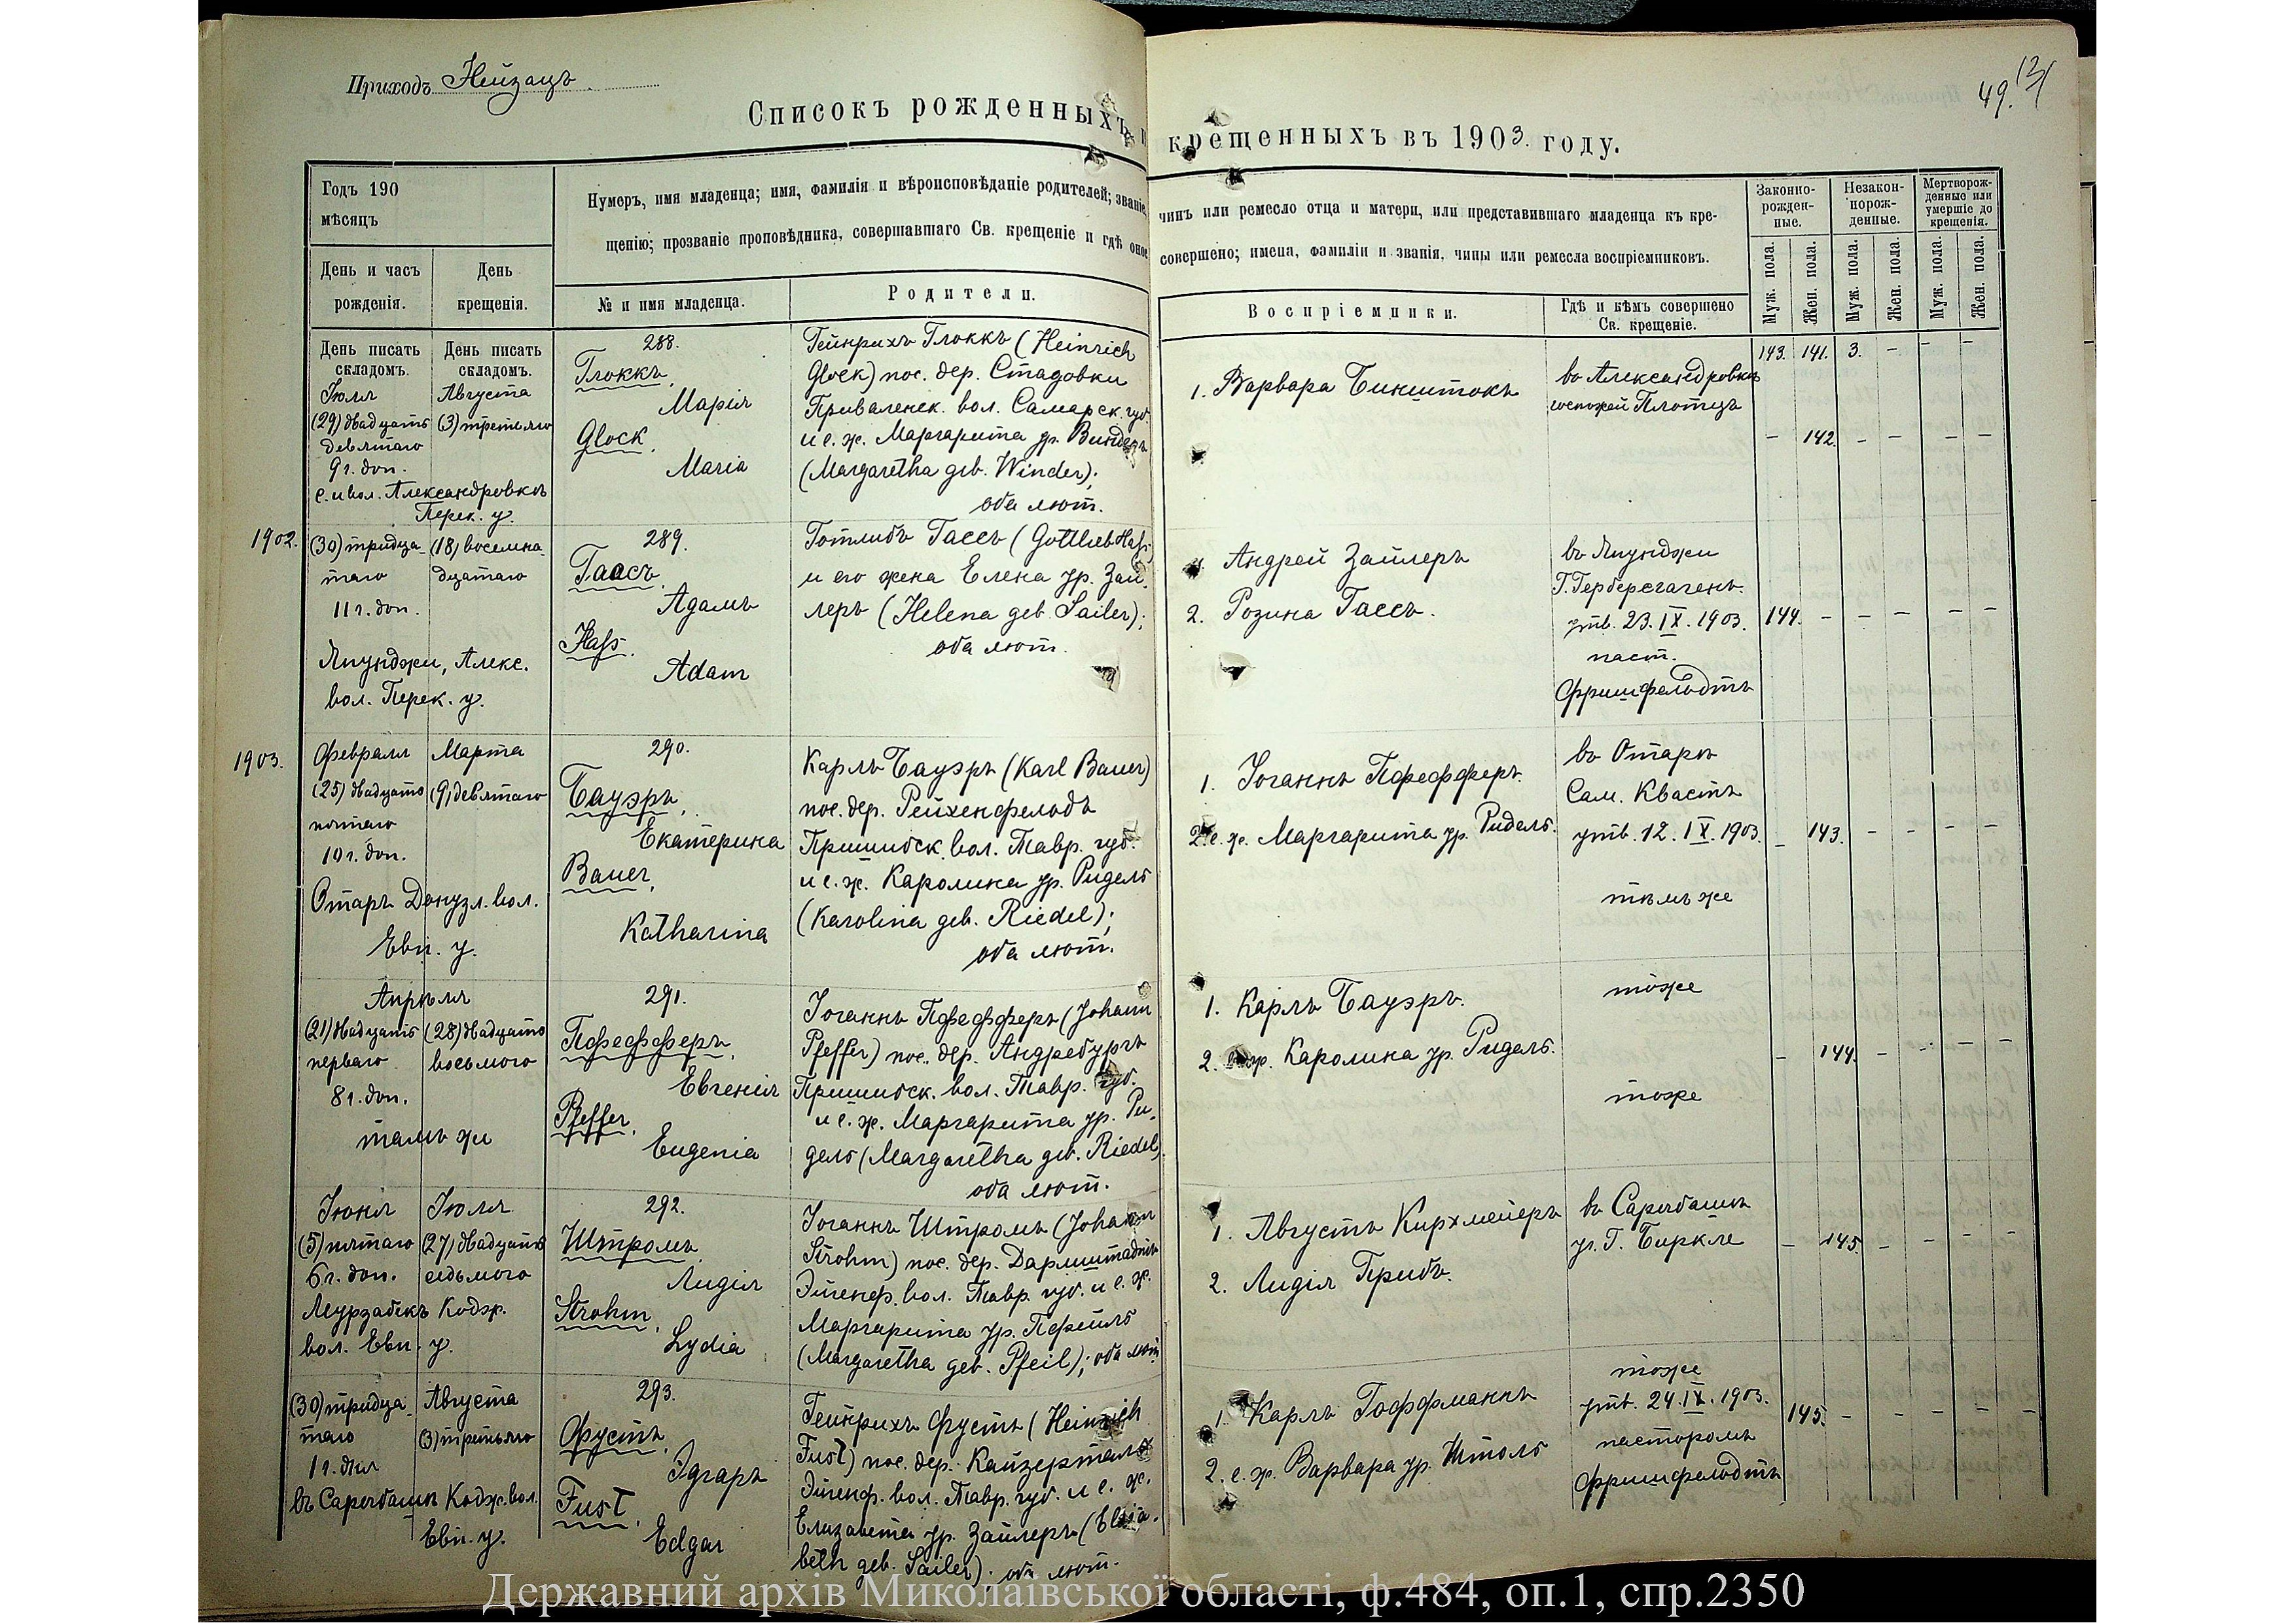 Приходъ Нейзацъ
49.
Списокъ рожденныхъ и крещенныхъ въ 1903. году.
Годъ 190
мѣсяцъ
День и часъ
рожденія.
День
крещенія.
Нумеръ, имя младенца; имя, фамилія и вѣроисповѣданіе родителей; званіе, чинъ или ремесло отца и матери, или представившаго младенца къ кре-
щенію; прозваніе проповѣдника, совершавшаго Св. крещеніе и гдѣ оное совершено; имена, фамиліи и званія, чины или ремесла воспріемниковъ.
№ и имя младенца.
Родители.
Воспріемники.
Гдѣ и кѣмъ совершено
Св. крещеніе.
Законно-
рожден-
ные.
Незакон-
норож-
денные.
Мертворож-
денные или
умершіе до
крещенія.
Муж. пола.
Жен. пола.
Муж. пола.
Жен. пола.
Муж. пола.
Жен. пола.
День писать
складомъ.
День писать
складомъ.
143. 141. 3. - - -
Іюля
(29) двадцать
девятаго
9 г. доп.
с. и вол. Александровкѣ
Перек. у.
Августа
(3) третьяго
288.
Глоккъ,
Марія
Glock,
Maria
Гейнрихъ Глоккъ (Heinrich
Glock) пос. дер. Стадовки
Приваленск. вол. Самарск. губ.
и е. ж. Маргарита ур. Виндеръ
(Margaretha geb. Winder);
оба лют.
1. Варвара Бинштокъ
въ Александровкѣ
госпожей Плотцъ
- 142. - - - -
1902.
(30) тридца-
таго
11 г. доп.
Япунджи, Алекс.
вол. Перек. у.
(18) восемна-
дцатаго
289.
Гаасъ,
Адамъ
Haß.
Adam
Готлибъ Гассъ (Gottlieb Haß)
и его жена Елена ур. Зай-
леръ (Helena geb. Sailer);
оба лют.
1. Андрей Зайлеръ
2. Розина Гассъ.
въ Япунджи
Г. Герберсгагенъ.
утв. 23. IX. 1903.
паст.
Фришфельдтъ
144. - - - - -
1903.
Февраля
(25) двадцать
пятаго
10 г. доп.
Отаръ Донузл. вол.
Евп. у.
Марта
(9) девятаго
290.
Бауэръ,
Екатерина
Bauer,
Katharina
Карлъ Бауэръ (Karl Bauer)
пос. дер. Рейхенфельдъ
Пришибск. вол. Тавр. губ.
и е. ж. Каролина ур. Ридель
(Karolina geb. Riedel);
оба лют.
1. Іоганнъ Пфефферъ.
2. е. ж. Маргарита ур. Ридель.
въ Отарѣ
Сам. Квастъ
утв. 12. IX. 1903.
тѣмъ же
- 143. - - - -
Апрѣля
(21) двадцать
перваго
8 г. доп.
тамъ же
(28) двадцать
восьмого
291.
Пфефферъ,
Евгенія
Pfeffer,
Eugenia
Іоганнъ Пфефферъ (Johann
Pfeffer) пос. дер. Андребургъ
Пришибск. вол. Тавр. губ.
и е. ж. Маргарита ур. Ри-
дель (Margaretha geb. Riedel)
оба лют.
1. Карлъ Бауэръ.
2. е. ж. Каролина ур. Ридель.
тоже
тоже
- 144. - - - -
Іюня
(5) пятаго
6 г. доп.
Мурзабекъ Кодж.
вол. Евп. у.
Іюля
(27) двадцать
седьмого
292.
Штромъ,
Лидія
Strohm,
Lydia
Іоганнъ Штромъ (Johann
Strohm) пос. дер. Дармштадтъ
Эйгенф. вол. Тавр. губ. и е. ж.
Маргарита ур. Пфейль
(Margaretha geb. Pfeil); оба лют.
1. Августъ Кирхмейеръ
2. Лидія Прибъ.
въ Сарыбашѣ
уч. Г. Биркле
- 145. - - - -
(30) тридца-
таго
1 г. дня
въ Сарыбашѣ Кодж. вол.
Евп. у.
Августа
(3) третьяго
293.
Фустъ,
Эдгаръ
Fust,
Edgar
Гейнрихъ Фустъ (Heinrich
Fust) пос. дер. Кайзерталь
Эйгенф. вол. Тавр. губ. и е. ж.
Елизавета ур. Зайлеръ (Elisa-
beth geb. Sailer); оба лют.
1. Карлъ Гоффманнъ
2. е. ж. Варвара ур. Штоль
тоже
утв. 24. IX. 1903.
пасторомъ
Фришфельдтъ
145. - - - - -
Державний архів Миколаївської області, ф.484, оп.1, спр.2350